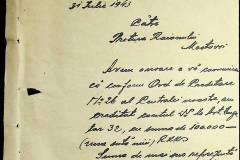 31 Iulie 1943
Către
Pretura Raionului
Mostovoi
Avem onoare a vă comunica
că conform Ord. de Creditare
No. 26 al Centralei noastre, am
creditat contul 45 de
32, cu suma de 100.000 -
(una sută mii) RKKS
Suma de mai sus reprezintă